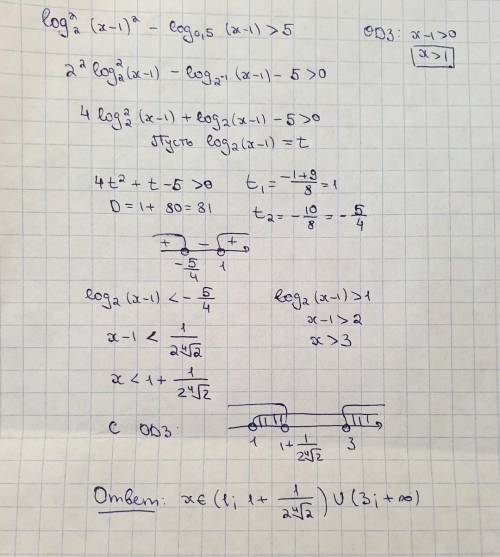 log₂²(x-1)² - log₀,₅(x-1)>5 ОДЗ: x-1>0
x>1
2² log₂²(x-1) - log₂₋₁(x-1) - 5>0
4 log₂²(x-1) + log₂(x-1) - 5>0
Пусть log₂(x-1) = t
4t² + t - 5 >0 t₁ = (-1+9)/8 = 1
D = 1 + 80 = 81 t₂ = -10/8 = -5/4
+ - +
-5/4 1
log₂(x-1) < -5/4 log₂(x-1) >1
x-1 < 1/(2∜2) x-1>2
x < 1 + 1/(2∜2) x>3
С ОДЗ:
1 1+1/(2∜2) 3
Ответ: x∈(1; 1 + 1/(2∜2)) ∪ (3; +∞)